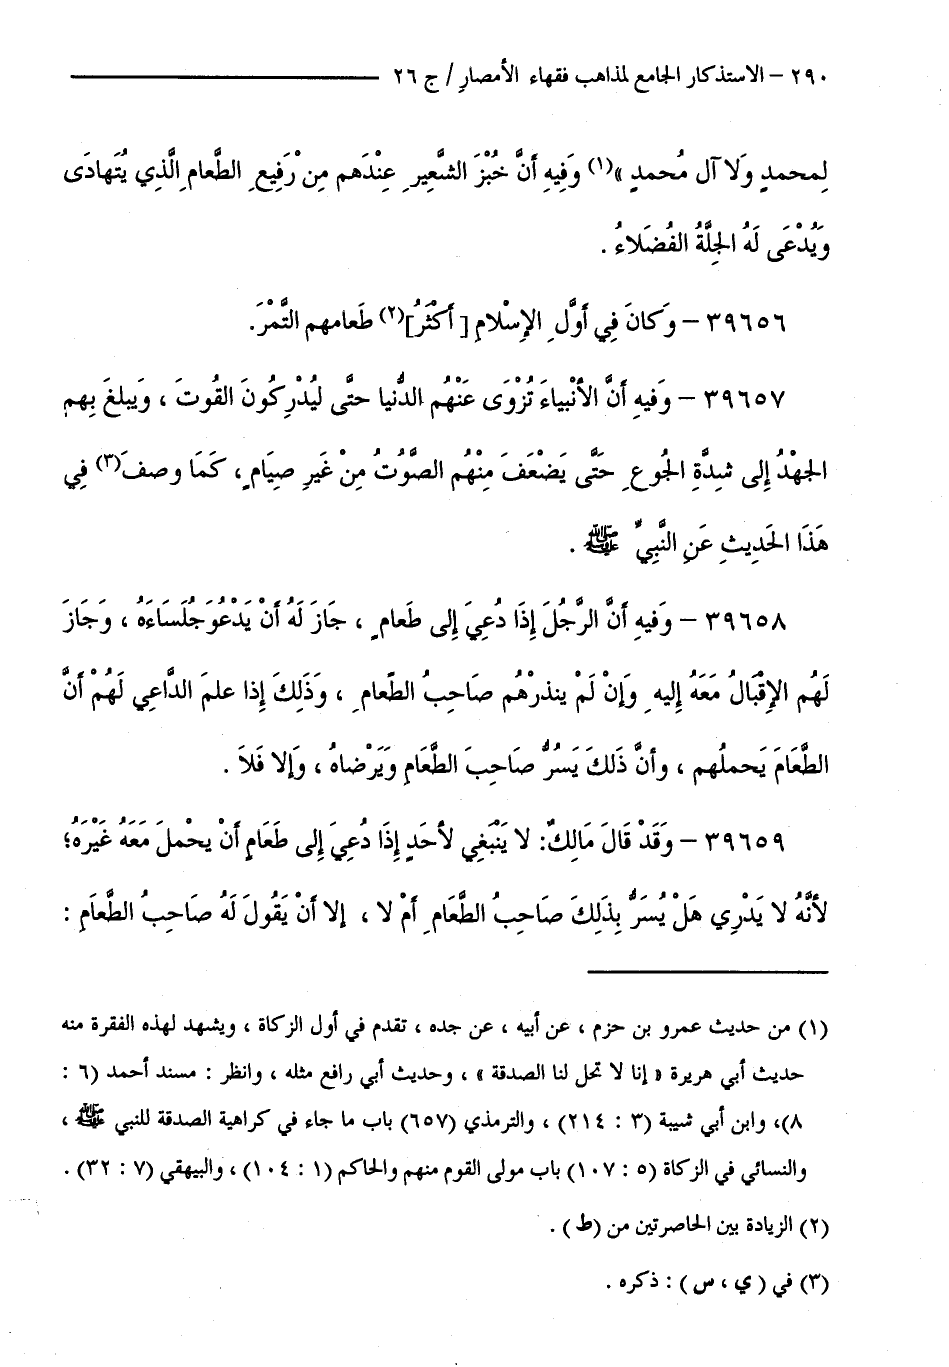 ٢٩٠ – الاستذكار الجامع لمذاهب فقهاء الأمصار / ج ٢٦
لِمحمدٍ وَلَا آل مُحمدٍ »(١) وَفِيهِ أَنَّ خُبْزَ الشَّعِيرِ عِنْدَهم مِنْ رَفِيعِ الطَّعامِ الَّذِي يُتَهادَى
وَيُدْعَى لَهُ الجِلَّةُ الفُضَلَاءُ .
٣٩٦٥٦ – وَكَانَ فِي أَوَّلِ الإِسْلامِ [ أَكْثَرُ](٢) طَعامهم التَّمْرَ.
٣٩٦٥٧ – وَفيهِ أَنَّ الأَنْبياءَ تُزْوَى عَنْهُم الدُّنيا حتَّى لَيُدْرِكُونَ القُوتَ ، وَيبلغَ بِهم
الجهْدُ إِلى شِدَّةِ الجُوعِ حَتَّى يَضْعَفَ مِنْهُم الصَّوْتُ مِنْ غَيرِ صِيَامٍ، كَمَا وصفَ(٣) فِي
هَذَا الحَدِيثِ عَنِ النَّبِيِّ ﷺ .
٣٩٦٥٨ – وَفيهِ أَنَّ الرَّجُلَ إِذَا دُعِيَ إِلى طَعامٍ ، جَازَ لَهُ أَنْ يَدْعُوَ جُلَسَاءَهُ ، وَجَازَ
لَهُم الإِقْبَالُ مَعَهُ إِليهِ وَإِنْ لَمْ ينذرْهُم صَاحِبُ الطَّعامِ ، وَذَلِكَ إِذا علمَ الدَّاعِي لَهُمْ أَنَّ
الطَّعَامَ يَحملُهم ، وأَنَّ ذَلكَ يَسُرُّ صَاحِبَ الطَّعَامِ وَيَرْضاهُ ، وَإِلا فَلاَ .
٣٩٦٥٩ – وَقَدْ قَالَ مَالِكٌ: لا يَنْبَغِي لأَحَدٍ إِذَا دُعِيَ إِلى طَعَامٍ أَنْ يحْملَ مَعَهُ غَيْرَهُ؛
لأَنَّهُ لا يَدْرِي هَلْ يُسَرُّ بِذَلِكَ صَاحِبُ الطَّعَامِ أَمْ لا ، إلا أَنْ يَقُولَ لَهُ صَاحِبُ الطَّعَامِ :
(١) من حديث عمرو بن حزم ، عن أبيه ، عن جده ، تقدم في أول الزكاة ، ويشهد لهذه الفقرة منه
حديث أبي هريرة « إنا لا تحل لنا الصدقة » ، وحديث أبي رافع مثله ، وانظر : مسند أحمد (٦ :
٨)، وابن أبي شيبة (٣ : ٢١٤) ، والترمذي (٦٥٧) باب ما جاء في كراهية الصدقة للنبي ﷺ ،
والنسائي في الزكاة (٥ : ١٠٧) باب مولى القوم منهم والحاكم (١ : ٤٠٤) ، والبيهقي (٧ : ٣٢) .
(٢) الزيادة بين الحاصرتين من (ط) .
(٣) في ( ي ، س ) : ذكره .